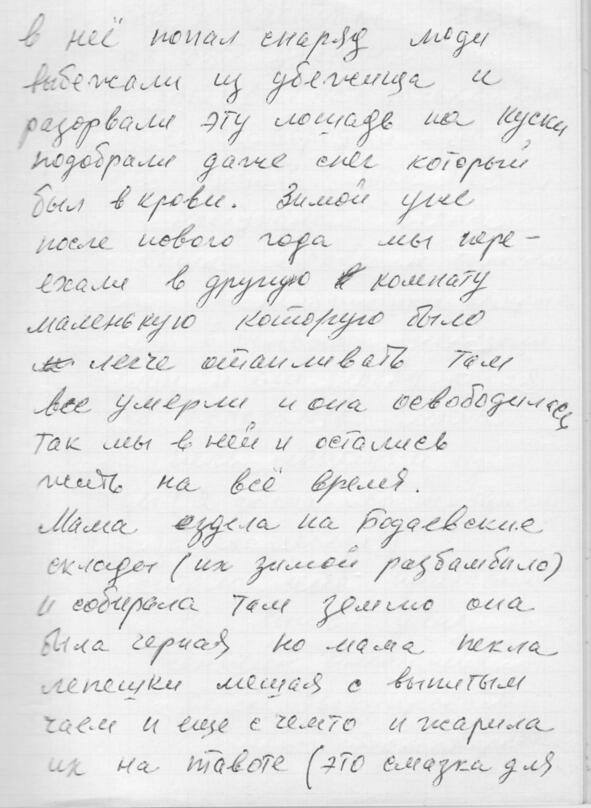 в неё попал снаряд люди
выбежали из убежища и
разорвали эту лошадь на куски
подобрали даже снег который
был в крови. Зимой уже
после нового года мы пере-
ехали в другую комнату
маленькую которую было
легче отапливать там
все умерли и она освободилась
так мы в ней и остались
жить на всё время.
Мама ездела на Бодаевские
склады (их зимой разбамбило)
и собирала там землю она
была черная но мама пекла
лепешки мешая с выпитым
чаем и еще с чемто и жарила
их на тавоте (это смазка для